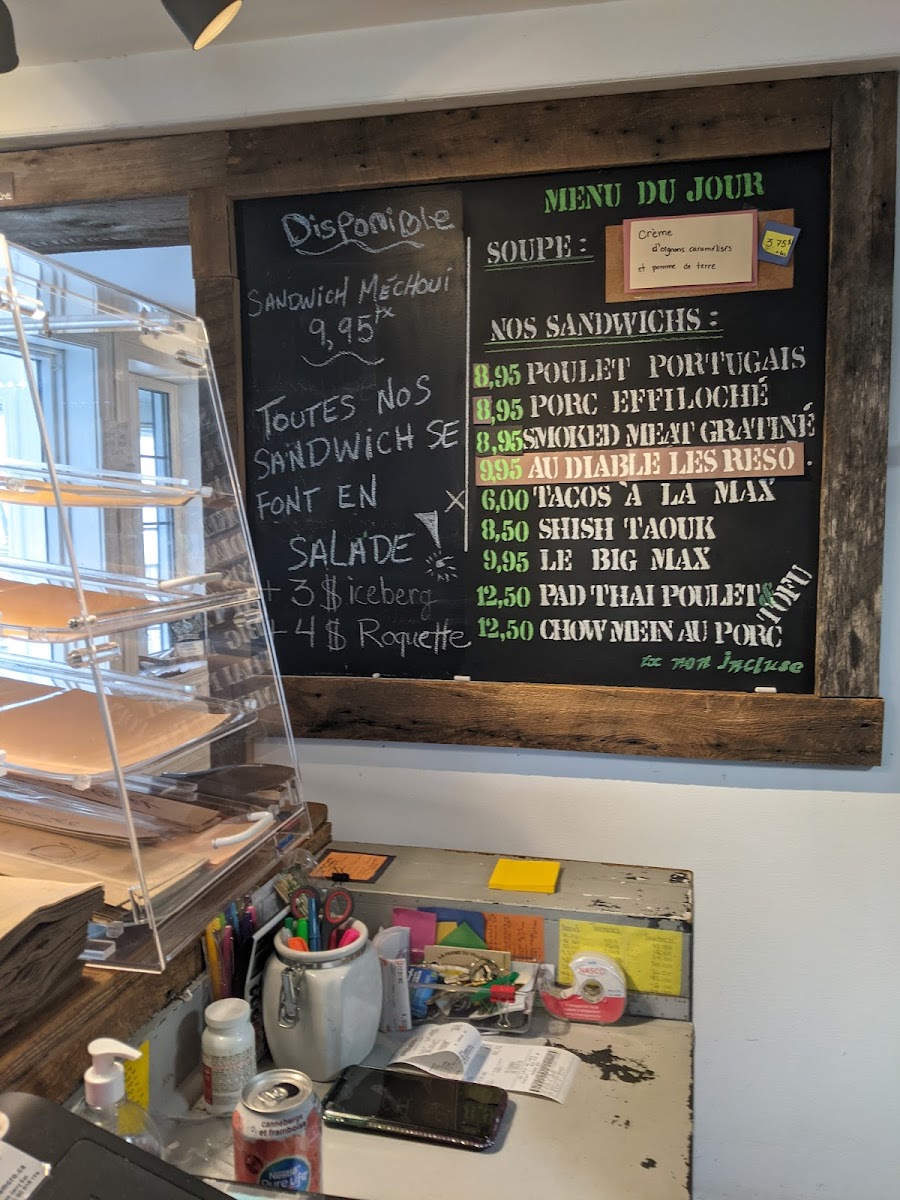 Disponible
SANDWICH MÉCHOUI
9,95 tx
TOUTES NOS
SANDWICH SE
FONT EN
SALADE
+ 3 $ iceberg
+ 4 $ Roquette
MENU DU JOUR
SOUPE :
Crème
d'oignons caramélisés
et pomme de terre
3,75$
NOS SANDWICHS :
8,95 POULET PORTUGAIS
8,95 PORC EFFILOCHÉ
8,95 SMOKED MEAT GRATINÉ
9,95 AU DIABLE LES RESO
6,00 TACOS À LA MAX
8,50 SHISH TAOUK
9,95 LE BIG MAX
12,50 PAD THAI POULET & TOFU
12,50 CHOW MEIN AU PORC
tx non incluse
NASCO
canneberge
et framboise
Nestlé
PURE LIFE